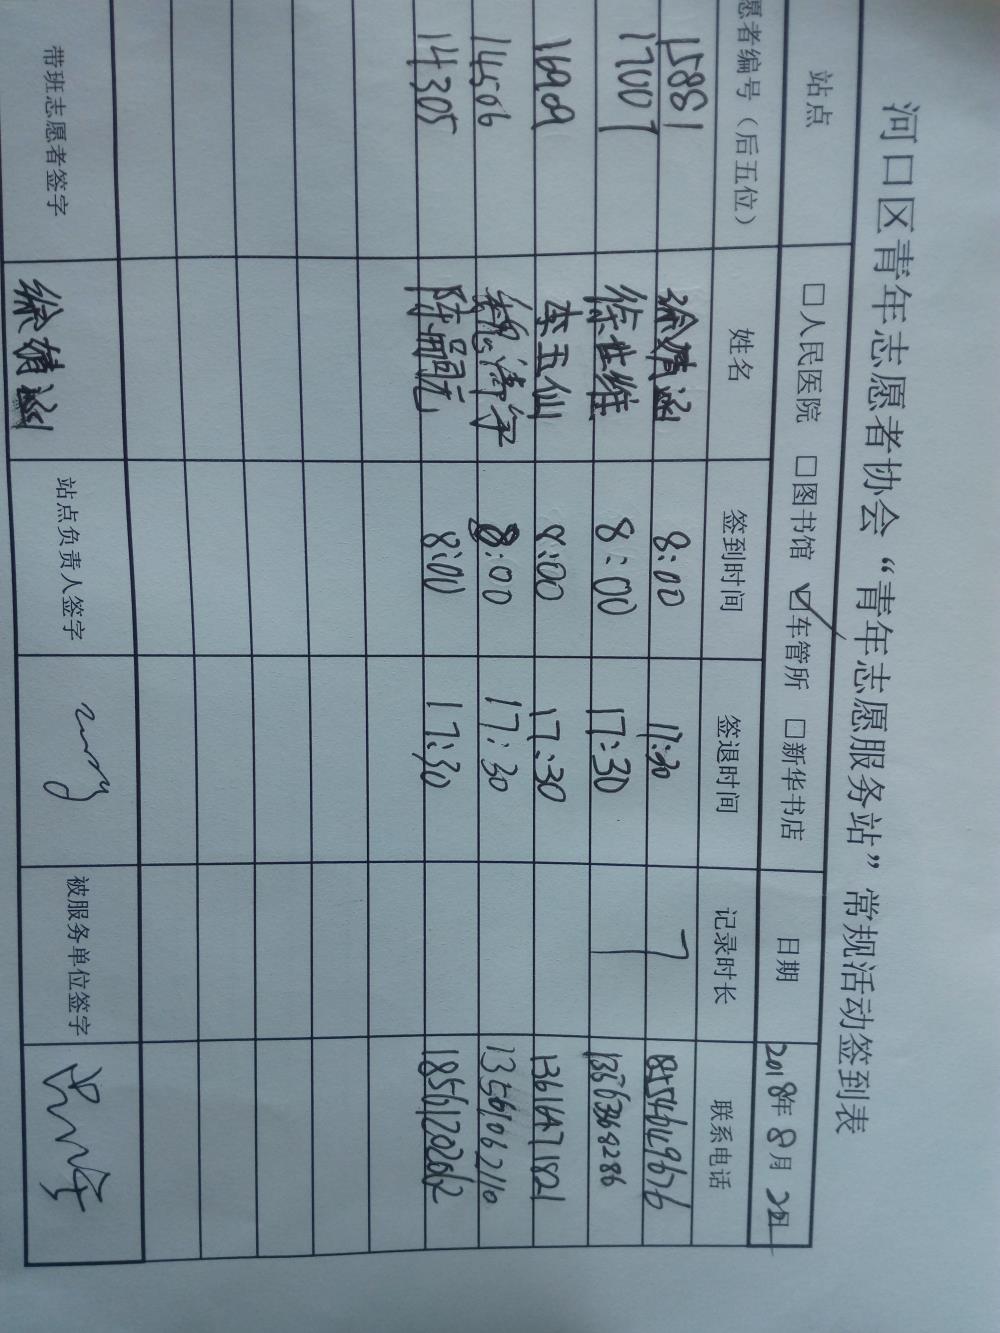 河口区青年志愿者协会“青年志愿服务站”常规活动签到表
站点 □人民医院 □图书馆 ☑车管所 □新华书店 日期 2018年8月2日
愿者编号（后五位） 姓名 签到时间 签退时间 记录时长 联系电话
15881 徐婧涵 8:00 17:30 7 18554649676
17007 徐世维 8:00 17:30 13563368286
16909 李玉仙 8:00 17:30 13616471821
14506 8:00 17:30 13561062110
14305 8:00 17:30 18561202062
带班志愿者签字 徐婧涵 站点负责人签字 被服务单位签字